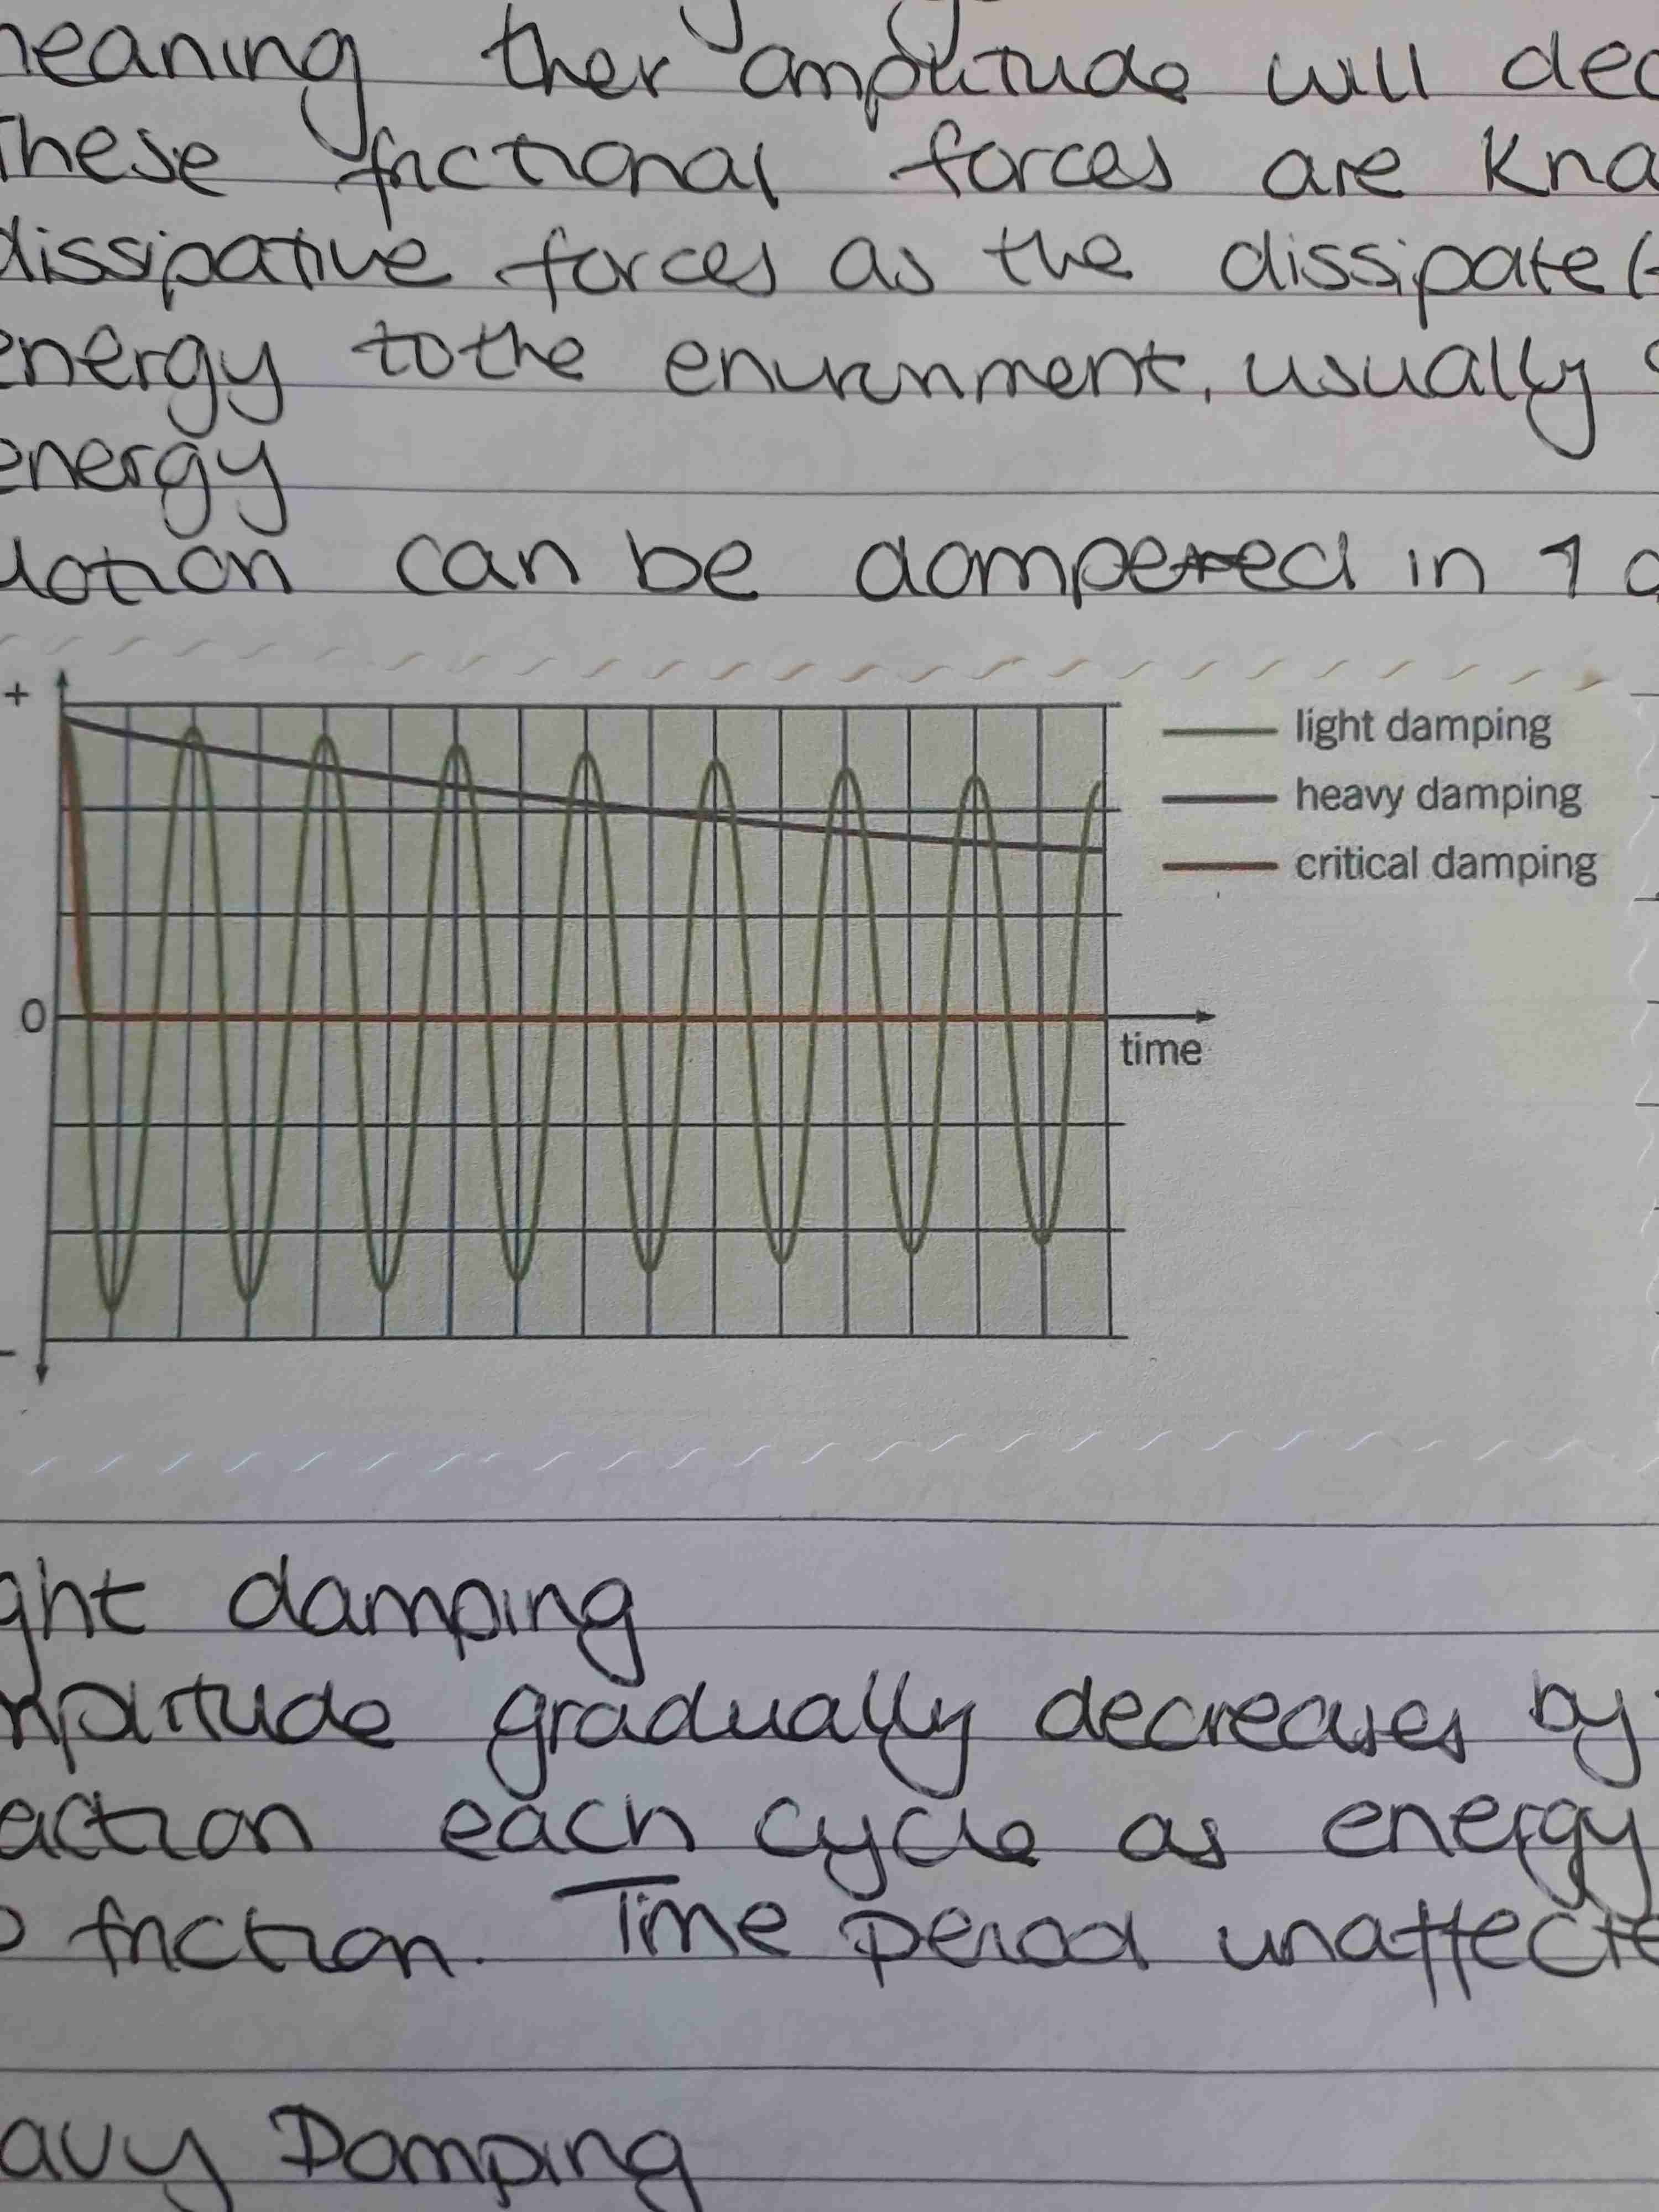 meaning ther amplitude will dec
These frictional forces are kno
dissipative forces as the dissipate (
energy to the environment, usually
energy
Motion can be dampered in 1 o
+
light damping
heavy damping
critical damping
0
time
-
ght damping
mplitude gradually decreases by
action each cycle as energy
o friction. Time period unaffecte
eavy Damping